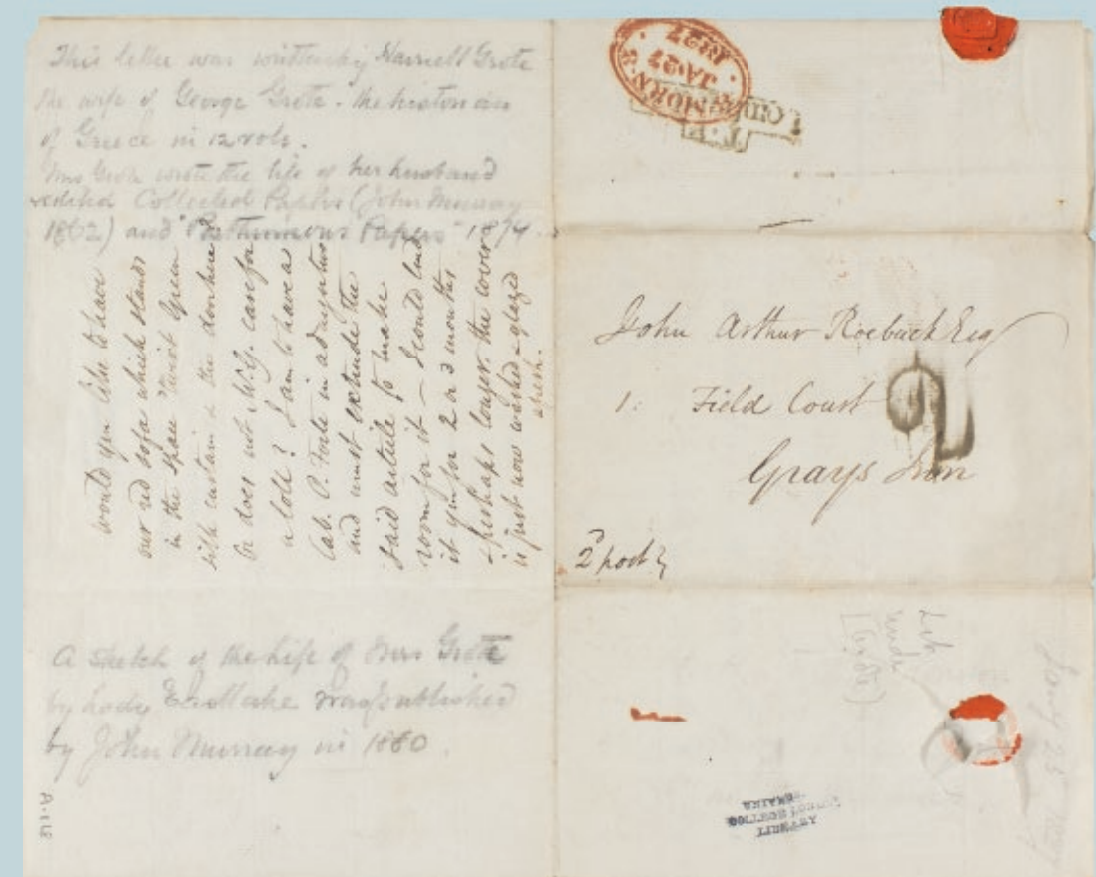 This letter was written by Harriett Grote
the wife of George Grote - the historian
of Greece in 12 vols.
Mrs Grote wrote the life of her husband
edited Collected Papers (John Murray
1862) and "Posthumous Papers" 1874.
would you like to have
our red sofa which stands
in the space twixt green
silk curtain & the door here
or does not Mrs. care for
a loll? I am to have a
Cab. P. Forte in a day or two
and must extrude the
said article to make
room for it - I could lend
it you for 2 or 3 months
& perhaps longer the cover
is just now washed & glazed
afresh.
A sketch of the life of Mrs Grote
by Lady Eastlake was published
by John Murray in 1880.
A.LS
MORN
JA. 27
1827
T.P
John Arthur Roebuck Esq
1: Field Court
Grays Inn
2
2d post